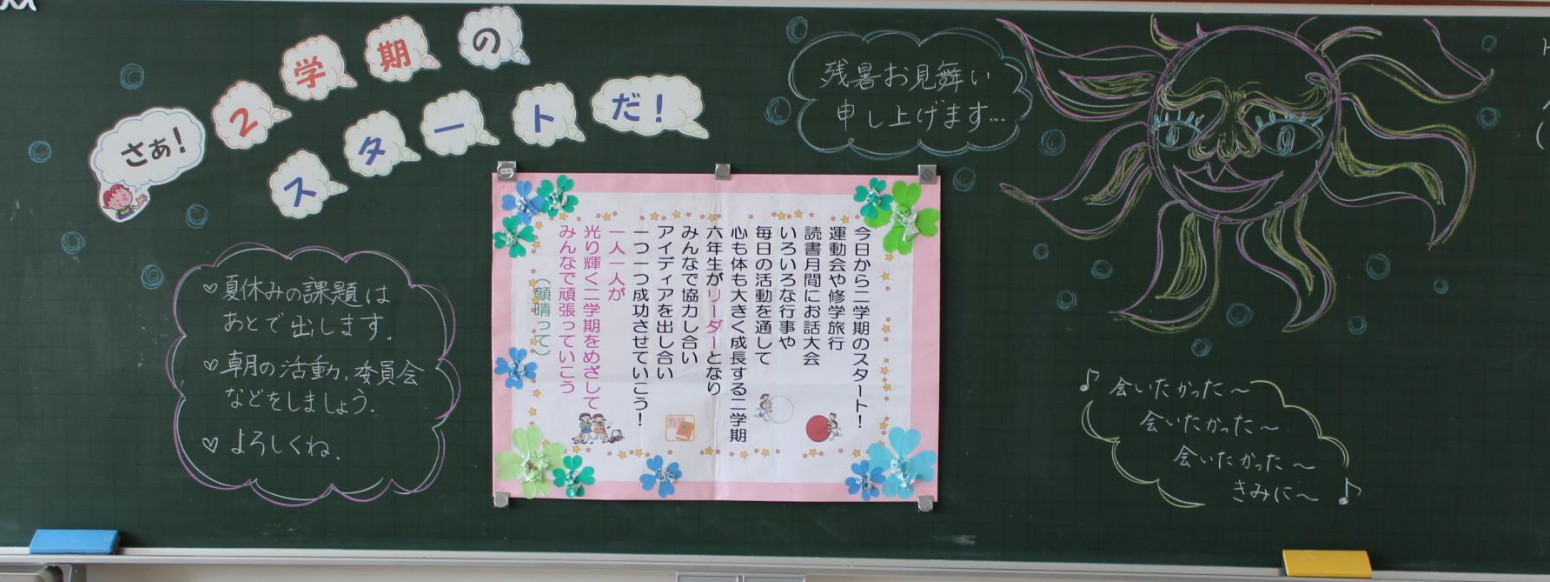 さぁ!
2学期の
スタートだ!
残暑お見舞い
申し上げます…
♡夏休みの課題は
あとで出します.
♡朝の活動,委員会
などをしましょう.
♡よろしくね.
今日から二学期のスタート!
運動会や修学旅行
読書月間にお話大会
いろいろな行事や
毎日の活動を通して
心も体も大きく成長する二学期
六年生がリーダーとなり
みんなで協力し合い
アイディアを出し合い
一つ一つ成功させていこう!
一人一人が
光り輝く二学期をめざして
みんなで頑張っていこう
(顔晴って)
♪会いたかった~
会いたかった~
会いたかった~
きみに~♪